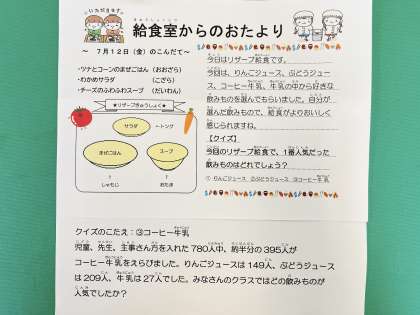 いただきます
給食室からのおたより
きゅうしょくしつ
～ 7月12日(金)のこんだて～
・ツナとコーンのまぜごはん (おおざら)
・わかめサラダ (こざら)
・チーズのふわふわスープ (だいわん)
★リザーブきゅうしょく★
サラダ
←トング
まぜごはん
スープ
↑
しゃもじ
↑
おたま
今日はリザーブ給食です。
今回は、りんごジュース、ぶどうジュース、コーヒー牛乳、牛乳の中から好きな
飲みものを選んでもらいました。自分が
選んだ飲みもので、給食がよりおいしく
感じられますね。
【クイズ】
今回のリザーブ給食で、1番人気だった
飲みものはどれでしょう?
①りんごジュース ②ぶどうジュース ③コーヒー牛乳
クイズのこたえ:③コーヒー牛乳
児童、先生、主事さん方を入れた 780人中、約半分の 395人が
コーヒー牛乳をえらびました。りんごジュースは 149人、ぶどうジュース
は 209人、牛乳は 27人でした。みなさんのクラスではどの飲みものが
人気でしたか?